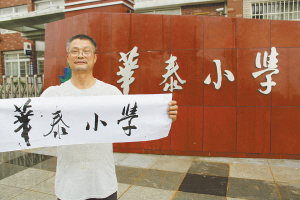 華泰小學
華泰小學